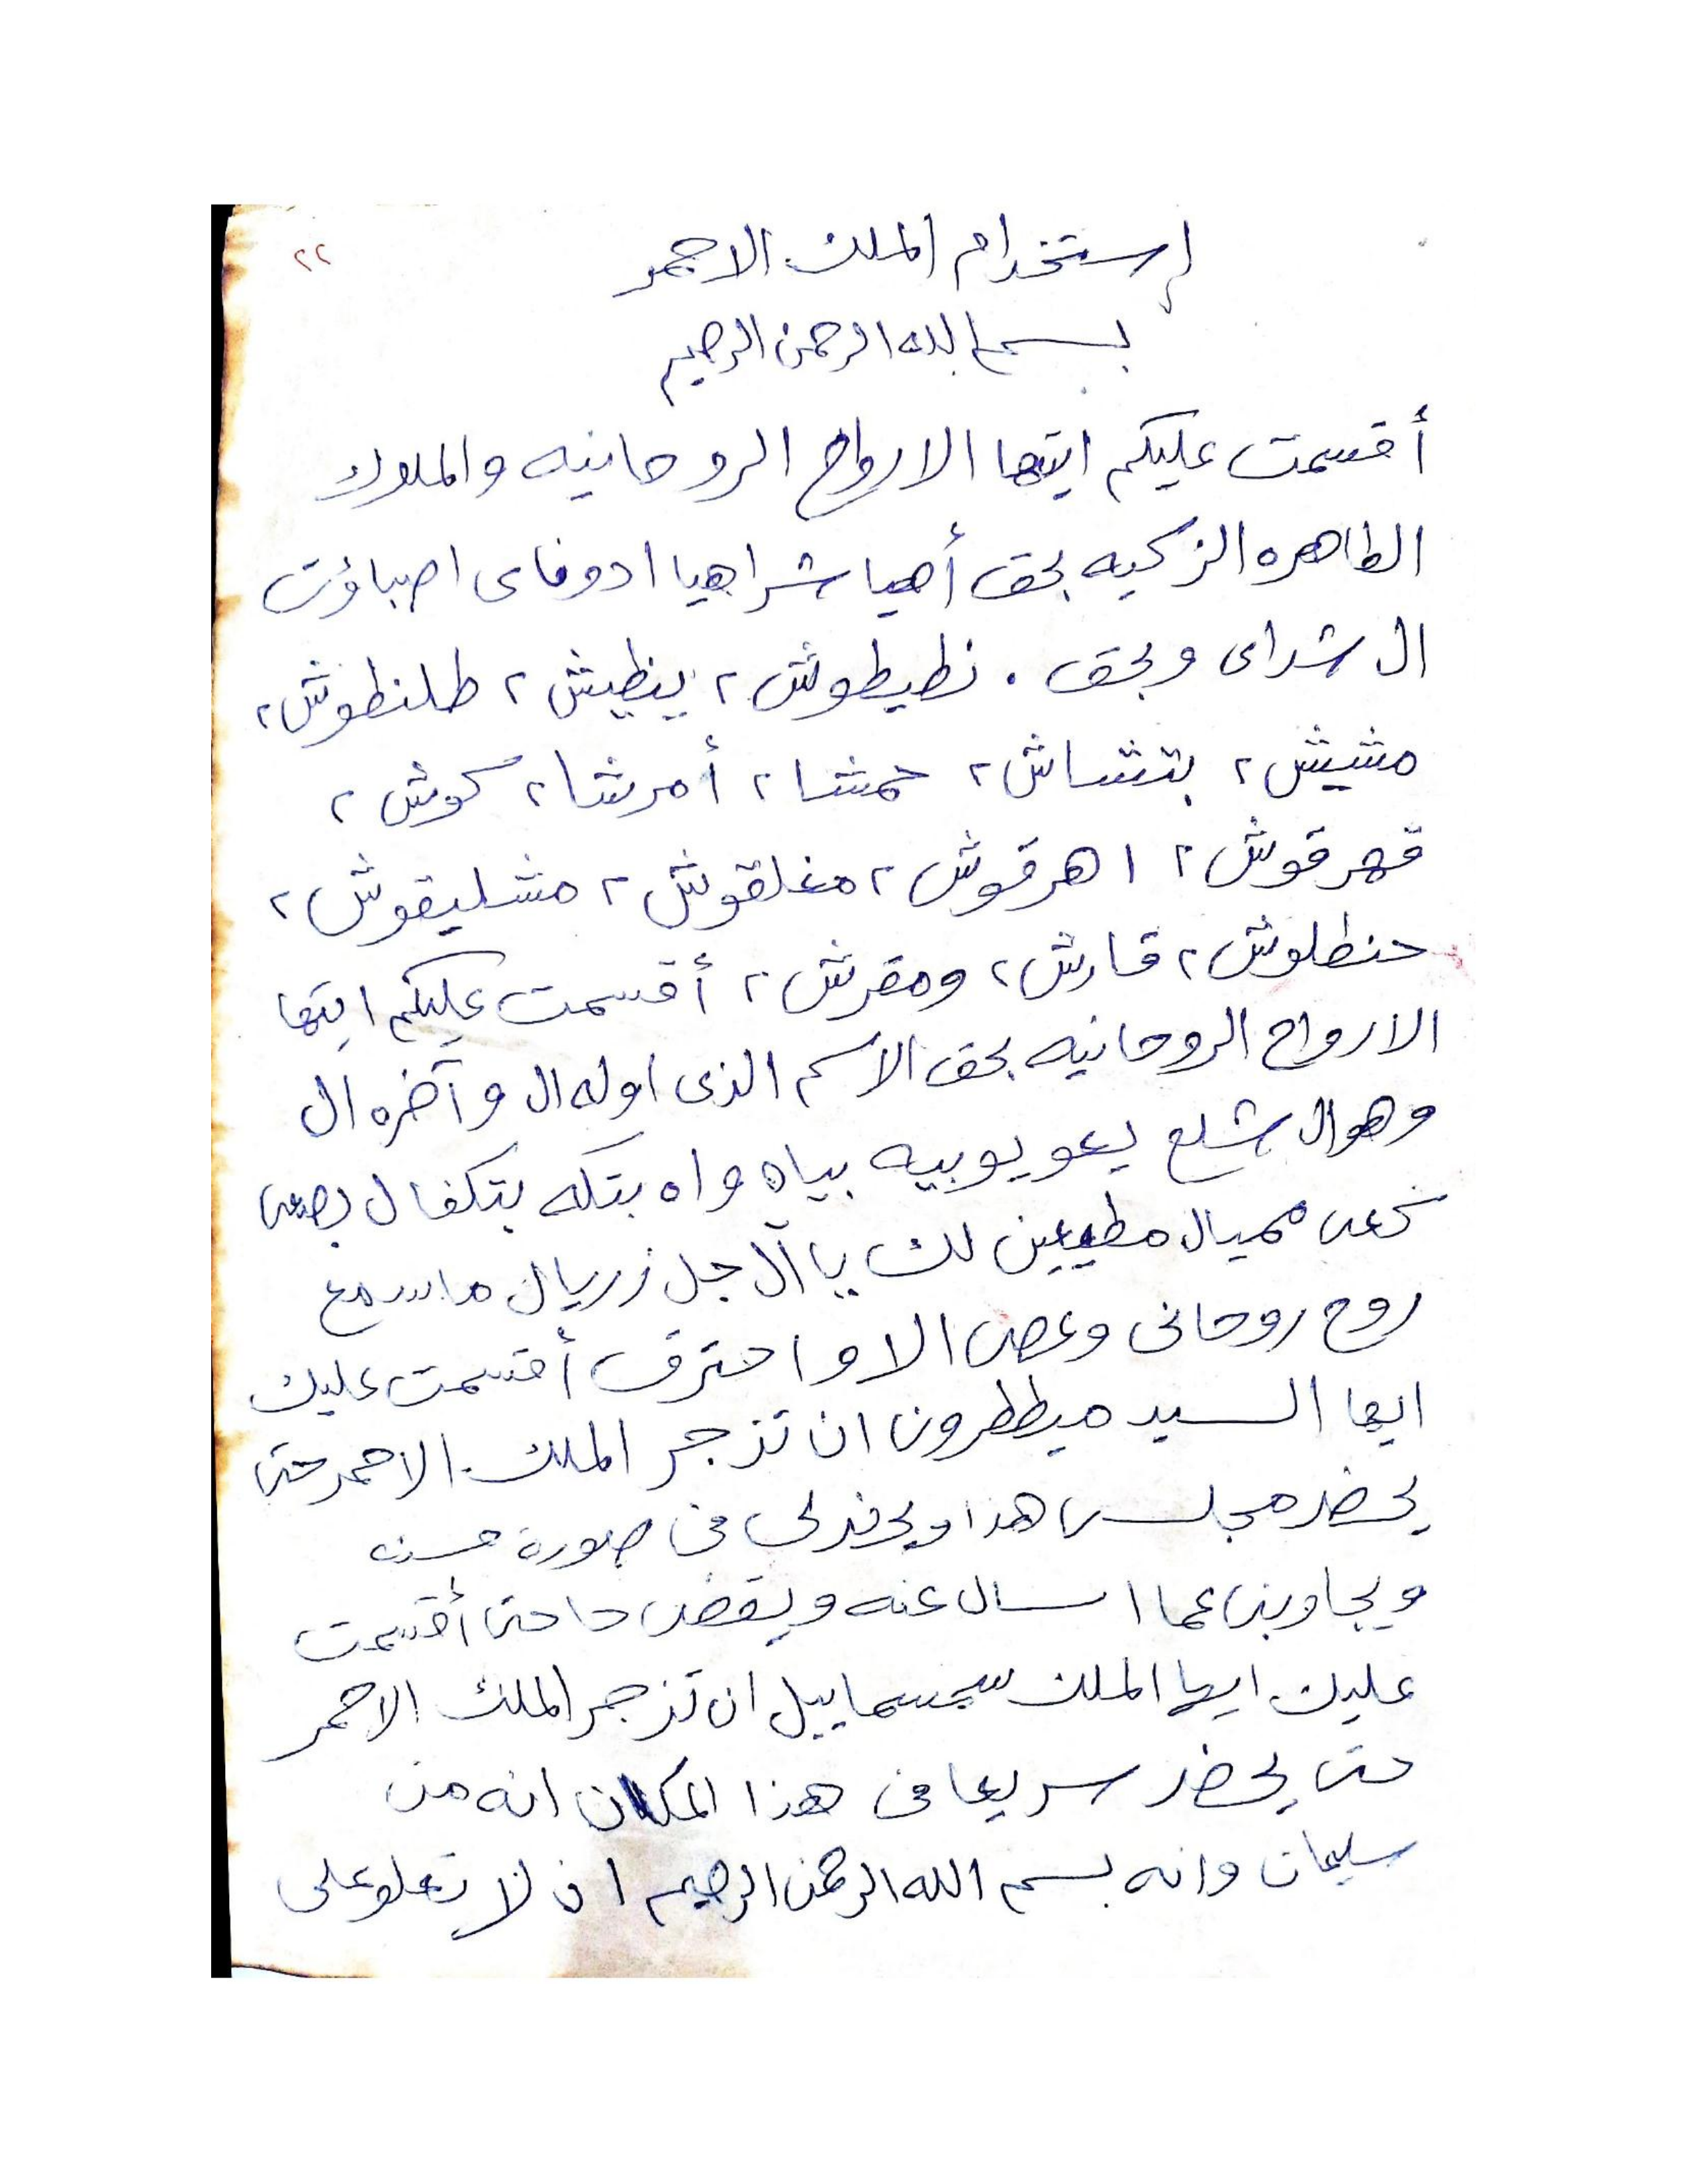 ٢٢
إستخدام الملك الاحمر
بسم الله الرحمن الرحيم
أقسمت عليكم ايتها الارواح الروحانيه والملوك
الطاهره الزكيه بحق أهيا شراهيا ادوناى اصباؤت
ال شداى وبحق . نطيطوش ٢ ينظيش ٢ طلنطوش ٢
مشيش ٢ بتشاش ٢ حمشا ٢ أمرشا ٢ كوش ٢
قهرقوش ٢ اهرقوش ٢ مغلقوش ٢ مشليقوش ٢
حنطلوش ٢ قارش ٢ ومقرش ٢ أقسمت عليكم ايتها
الارواح الروحانيه بحق الاسم الذى اوله ال وآخره ال
وهوال شلع يعو يوبيه بياه واه بتكه بتكفال بصعى
كعى مميال مطيعين لك يا آل جل زريال ماسمع
روح روحانى وعصى الا واحترق أقسمت عليك
ايها السيد ميططرون ان تزجر الملك الاحمر حتى
يحضر مجلسى هذا فى صورة حسنه
ويجاوبنى عما اسال عنه ويقضى حاجتى أقسمت
عليك ايها الملك سمسماييل ان تزجر الملك الاحمر
حتى يحضر سريعا فى هذا المكان انه من
سليمان وانه بسم الله الرحمن الرحيم ان لا تعلو على